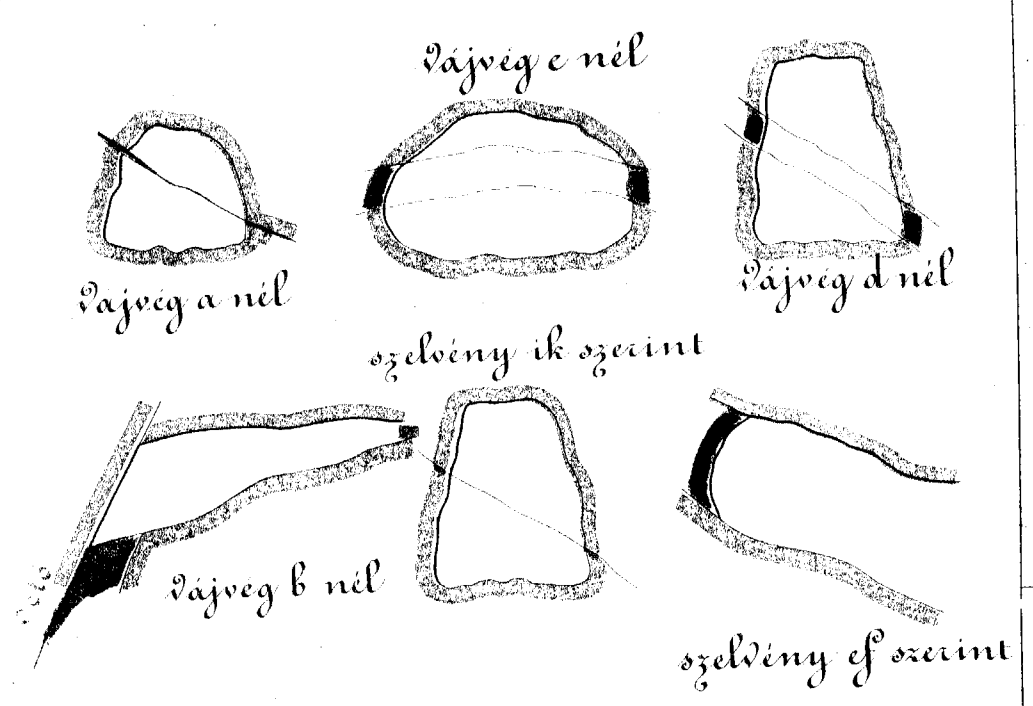 Vájvég c nél
Vájvég a nél
Vájvég d nél
szelvény ik szerint
Vájvég b nél
szelvény ef szerint